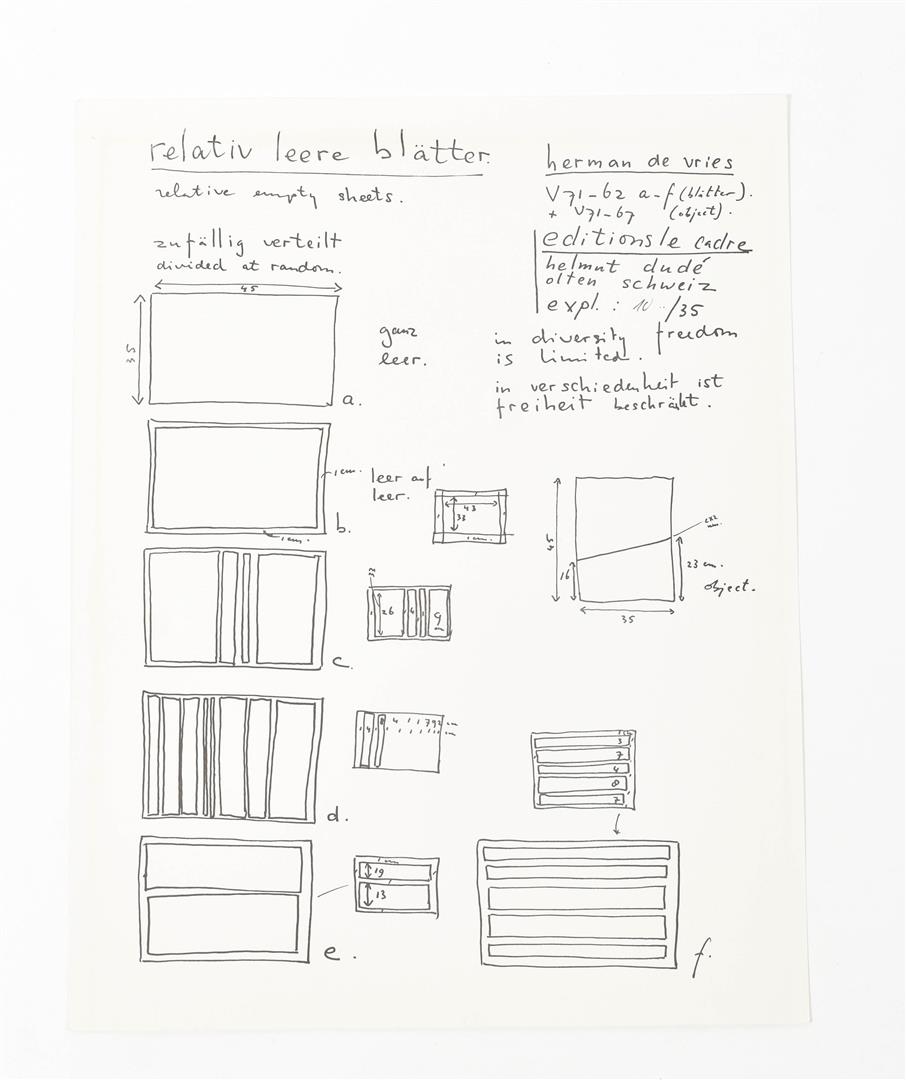 relativ leere blätter.
relative empty sheets.
zufällig verteilt
divided at random.
herman de vries
V71-62 a-f (blätter).
+ V71-67 (object).
editions le cadre
helmut dudé
olten schweiz
expl.: 10 /35
in diversity freedom
is limited.
in verschiedenheit ist
freiheit beschränkt.
45
35
ganz
leer.
a.
1 cm.
leer auf
leer.
b.
1 cm.
43
33
1 cm.
45
16
23 cm.
object.
35
26
4
9
c.
4
4 1 1 7 9 2 cm
d.
3
7
4
8
7
1 cm
19
13
e.
f.